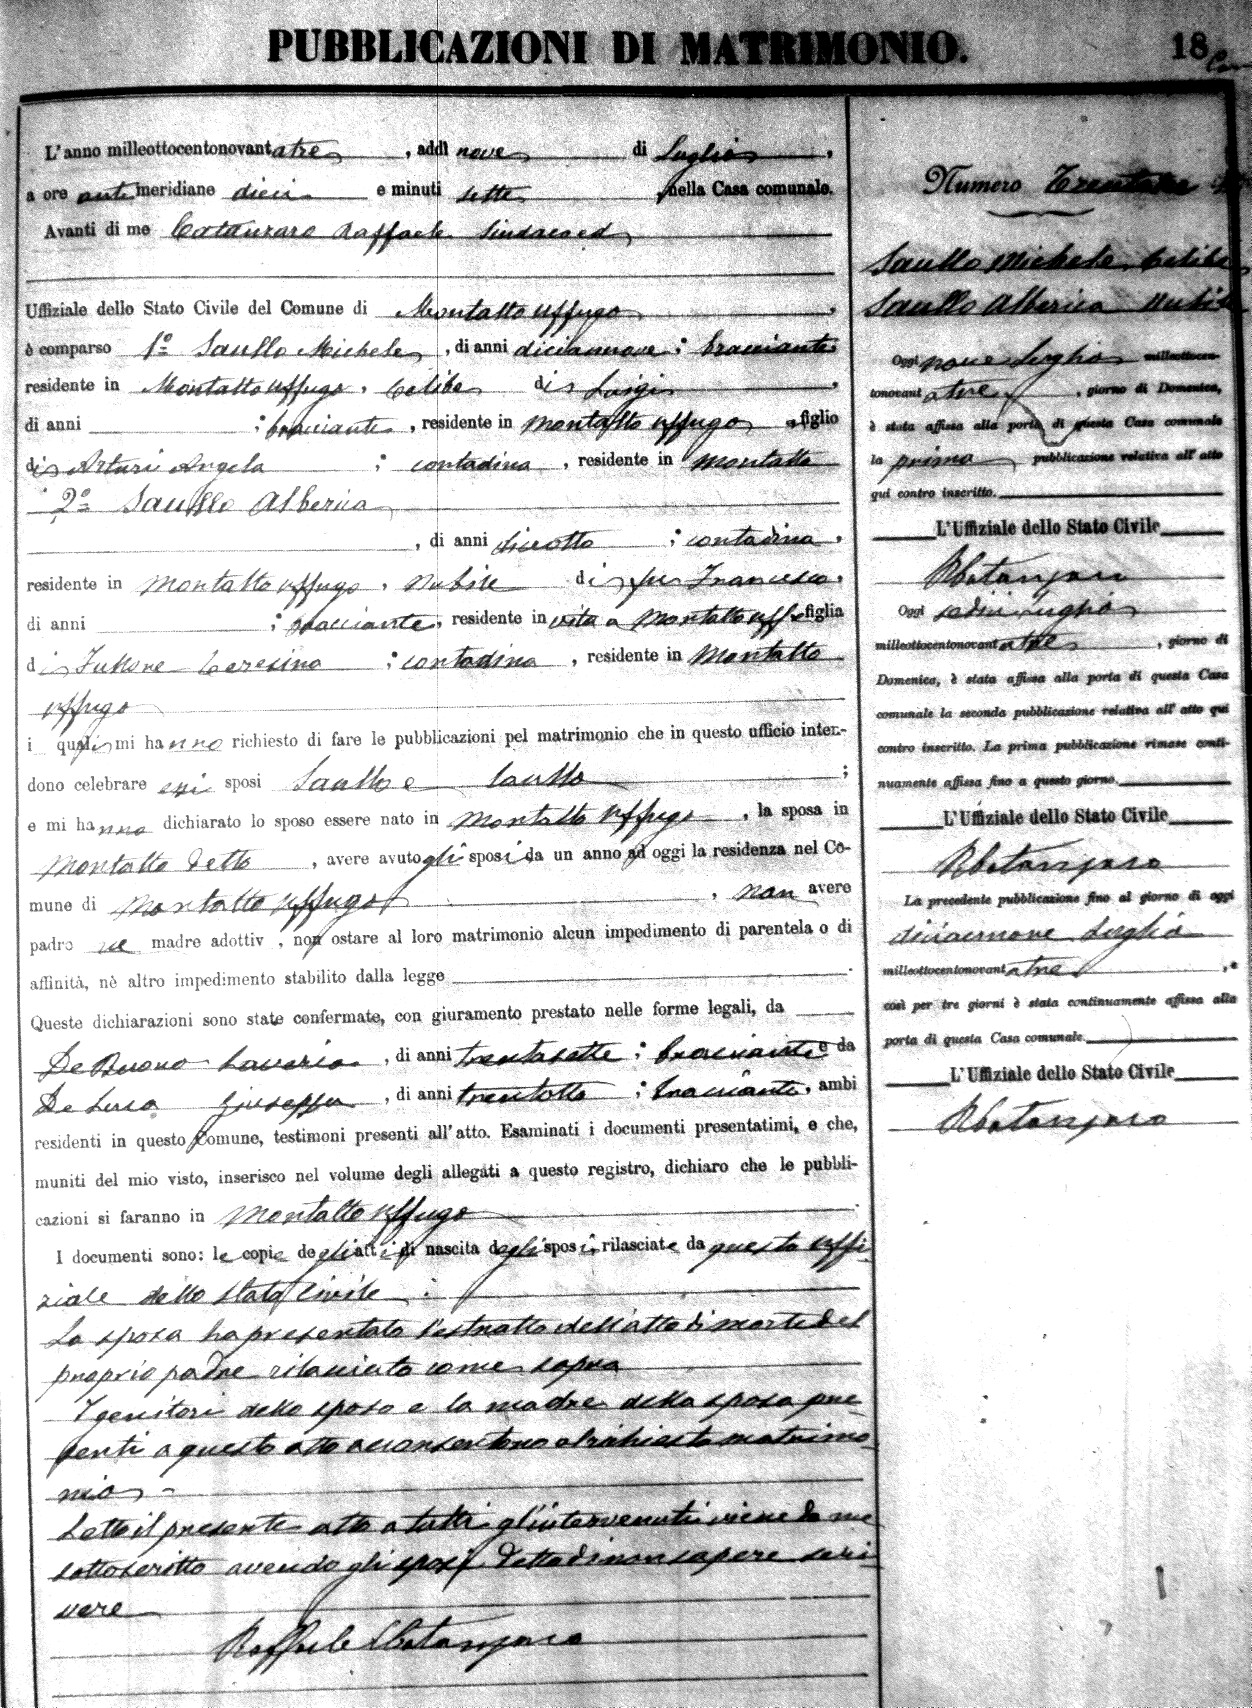 PUBBLICAZIONI DI MATRIMONIO.
18
L'anno milleottocentonovantatre, addì nove di Luglio,
a ore antimeridiane dieci e minuti sette, nella Casa comunale.
Avanti di me Raffaele Sindaco ed
Uffiziale dello Stato Civile del Comune di Montalto Uffugo,
è comparso 1º Saullo Michele, di anni diciannove; bracciante
residente in Montalto Uffugo, celibe di Luigi,
di anni ; bracciante, residente in Montalto Uffugo, figlio
di Arturi Angela ; contadina, residente in Montalto
2º Saullo Alberica
, di anni diciotto ; contadina,
residente in Montalto Uffugo, nubile di fu Francesco,
di anni ; bracciante, residente in vita a Montalto Uff figlia
di Teresina ; contadina, residente in Montalto
Uffugo
i quali mi hanno richiesto di fare le pubblicazioni pel matrimonio che in questo ufficio inten-
dono celebrare essi sposi Saullo e Saullo ;
e mi hanno dichiarato lo sposo essere nato in Montalto Uffugo, la sposa in
Montalto detto, avere avuto gli sposi da un anno ad oggi la residenza nel Co-
mune di Montalto Uffugo, non avere
padre ne madre adottiv , non ostare al loro matrimonio alcun impedimento di parentela o di
affinità, nè altro impedimento stabilito dalla legge .
Queste dichiarazioni sono state confermate, con giuramento prestato nelle forme legali, da
De Buono Saverio, di anni trentasette; bracciante e da
De Luca Giuseppe, di anni trentotto ; bracciante, ambi
residenti in questo Comune, testimoni presenti all'atto. Esaminati i documenti presentatimi, e che,
muniti del mio visto, inserisco nel volume degli allegati a questo registro, dichiaro che le pubbli-
cazioni si faranno in Montalto Uffugo.
I documenti sono: le copie degli atti di nascita degli sposi, rilasciate da questo uffi-
ziale dello Stato Civile.
La sposa ha presentato l'estratto dell'atto di morte del
proprio padre rilasciato come sopra
I genitori dello sposo e la madre della sposa pre-
senti a questo atto acconsentono al richiesto matrimo-
nio -
Letto il presente atto a tutti gl'intervenuti viene da me
sottoscritto avendo gli sposi detto di non sapere scri-
vere
Numero
Saullo Michele Celibe
Saullo Alberica Nubile
Oggi nove Luglio milleottocen-
tonovantatre, giorno di Domenica,
è stata affissa alla porta di questa Casa comunale
la prima pubblicazione relativa all'atto
qui contro inscritto.
L'Uffiziale dello Stato Civile
Oggi sedici Luglio
milleottocentonovantatre, giorno di
Domenica, è stata affissa alla porta di questa Casa
comunale la seconda pubblicazione relativa all'atto qui
contro inscritto. La prima pubblicazione rimase conti-
nuamente affissa fino a questo giorno.
L'Uffiziale dello Stato Civile
La precedente pubblicazione fino al giorno di oggi
diciannove Luglio
milleottocentonovantatre, e
così per tre giorni è stata continuamente affissa alla
porta di questa Casa comunale.
L'Uffiziale dello Stato Civile